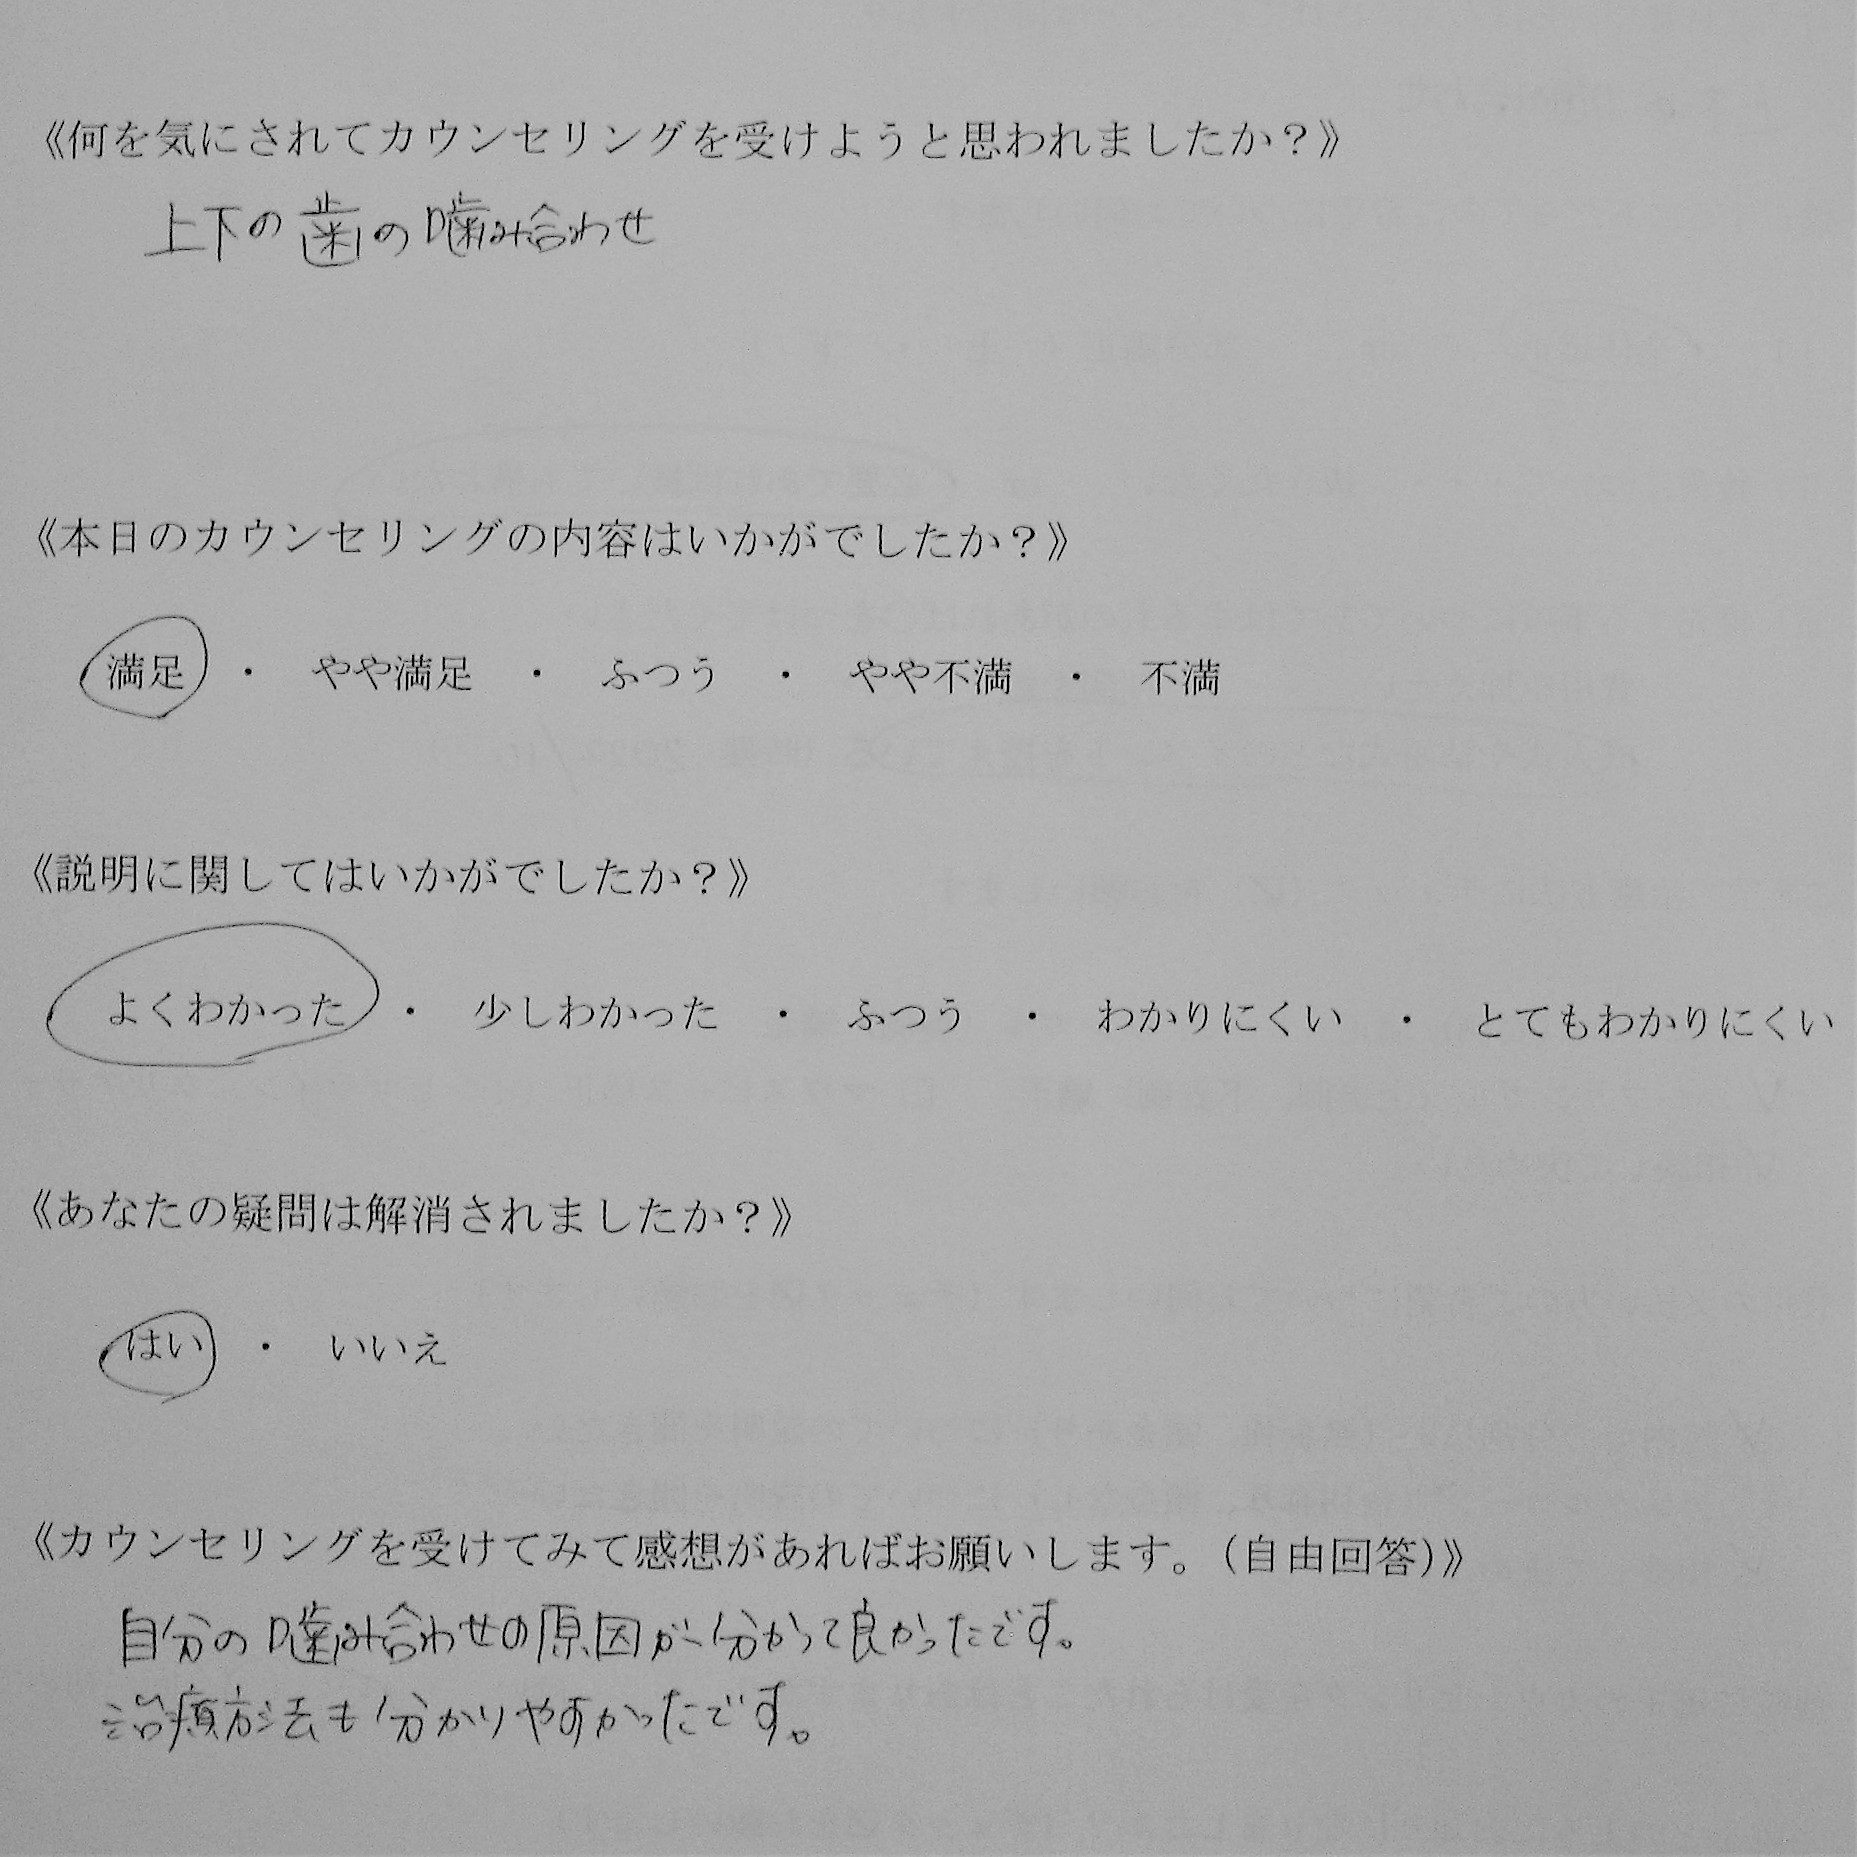 《何を気にされてカウンセリングを受けようと思われましたか？》
上下の歯の噛み合わせ
《本日のカウンセリングの内容はいかがでしたか？》
満足 ・ やや満足 ・ ふつう ・ やや不満 ・ 不満
《説明に関してはいかがでしたか？》
よくわかった ・ 少しわかった ・ ふつう ・ わかりにくい ・ とてもわかりにくい
《あなたの疑問は解消されましたか？》
はい ・ いいえ
《カウンセリングを受けてみて感想があればお願いします。（自由回答）》
自分の噛み合わせの原因が分かって良かったです。
治療方法も分かりやすかったです。